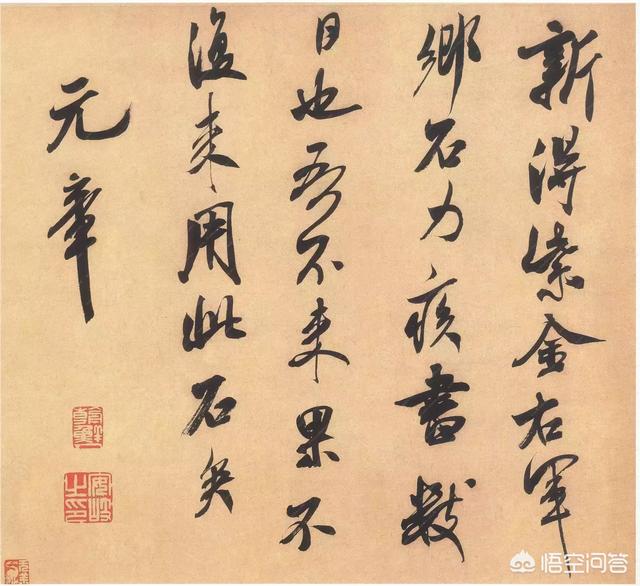 新得紫金右軍
鄉石力疾書數
日也吾不来果不
復来用此石矣
元章
安岐之印
悟空问答